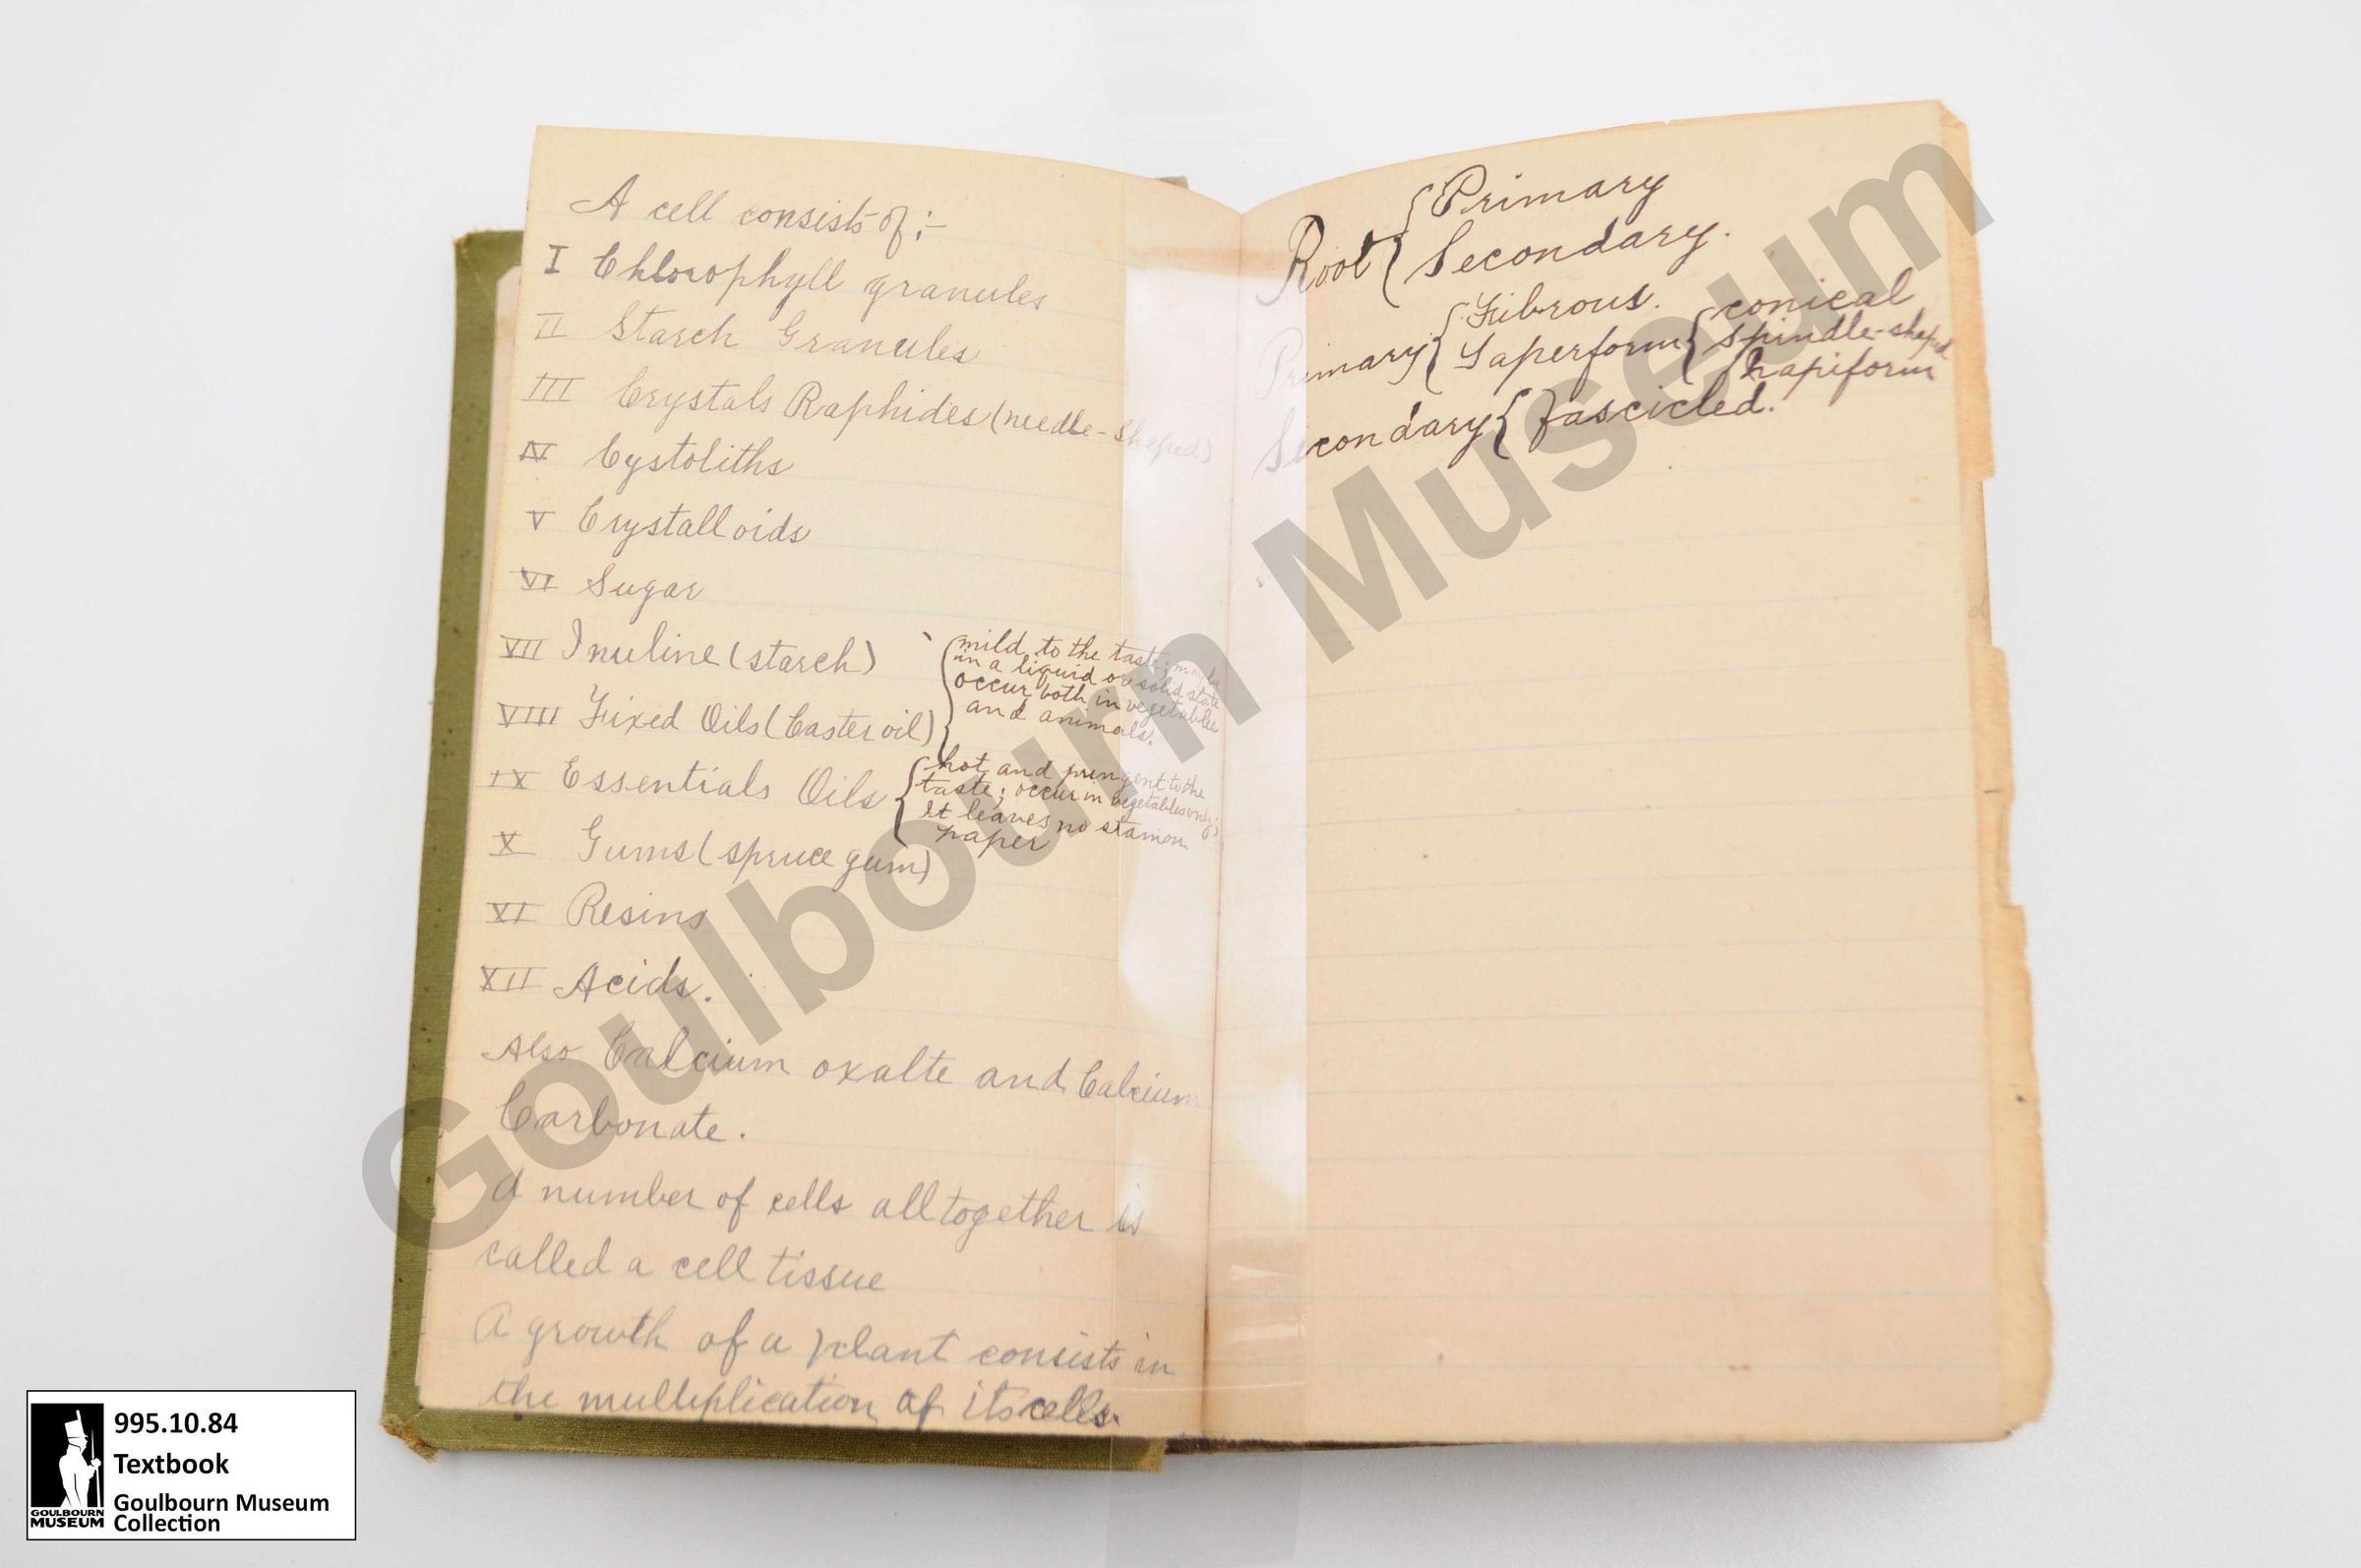 A cell consists of :-
I Chlorophyll granules
II Starch Granules
III Crystals Raphides (needle-shaped)
IV Cystoliths
V Crystalloids
VI Sugar
VII Inuline (starch)
VIII Fixed Oils (Caster oil)
mild to the taste; may be
in a liquid or solid state
occur both in vegetables
and animals.
IX Essentials Oils
hot and pungent to the
taste; occur in vegetables only;
It leaves no stain on
paper
X Gums (spruce gum)
XI Resins
XII Acids.
Also Calcium oxalte and Calcium
Carbonate.
A number of cells all together is
called a cell tissue
A growth of a plant consists in
the multiplication of its cells.
Root { Primary
Secondary.
Primary { Fibrous.
Taperform { conical
spindle-shaped
Napiform
Secondary { fascicled.
Goulbourn Museum
995.10.84
Textbook
Goulbourn Museum
Collection
GOULBOURN
MUSEUM